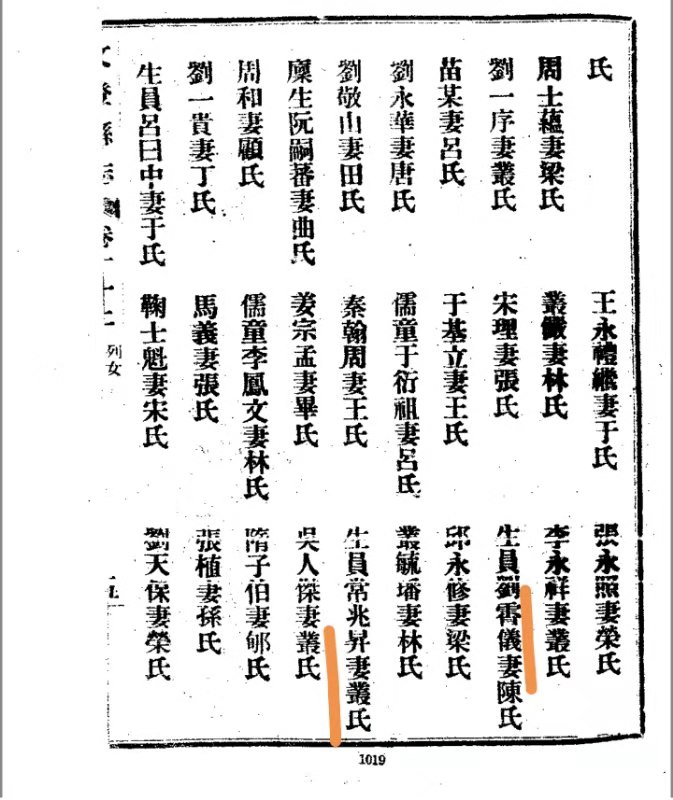 氏 王永禮繼妻于氏 張永照妻榮氏
周士蘊妻梁氏 叢妻林氏 李永祥妻叢氏
劉一序妻叢氏 宋理妻張氏 生員劉儀妻陳氏
苗某妻呂氏 于基立妻王氏 邱永修妻梁氏
劉永華妻唐氏 儒童于衍祖妻呂氏 叢毓墦妻林氏
劉敬山妻田氏 秦翰周妻王氏 生員常兆昇妻叢氏
廩生阮嗣蕃妻曲氏 姜宗孟妻畢氏 吳人傑妻叢氏
周和妻顧氏 儒童李鳳文妻林氏 隋子伯妻氏
劉一貴妻丁氏 馬義妻張氏 張植妻孫氏
生員呂日中妻于氏 鞠士魁妻宋氏 劉天保妻榮氏
文登縣志 卷十二 列女
1019